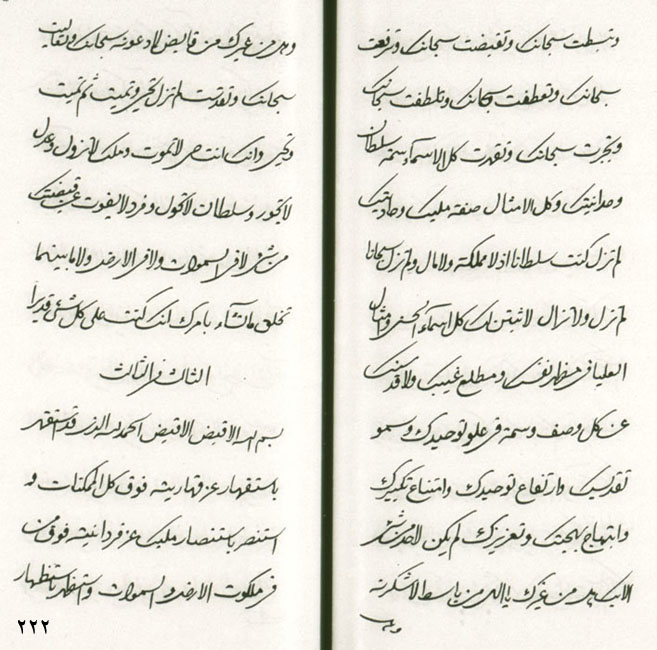 وتبسطت سبحانك وتقبضت سبحانك وترفعت
سبحانك وتعطفت سبحانك وتلطفت سبحانك
وتجبرت سبحانك وتقهرت كل الاسماء سمة سلطان
وحدانيتك وكل الامثال صفة مليك
لم تزل كنت سلطانا اذ لا مملكة ولا مال ولم تزل
لم تزل ولا تزال لاثبتن لك كل اسماء الحسنى وامثال
العليا في مظهر نفسك ومطلع غيبك ولاقدسنك
عن كل وصف وسمة في علو توحيدك وسمو
تقديسك وارتفاع توحيدك وامتناع تكبيرك
وابتهاج بهجتك وتعزيزك لم يكن لاحد من شيء
الا بك من غيرك يا الهي من باسط الا شكرته
وهل
وهل من غيرك من قابض لا دعوته سبحانك وتعاليت
سبحانك وتقدست لم تزل تحيي وتميت ثم تميت
وتحيي وانك انت حي لا تموت وملك لا تزول وعدل
لا تجور وسلطان لا تحول وفرد لا يفوت عن قبضتك
من شيء لا في السموات ولا في الارض ولا ما بينهما
تخلق ما تشاء بامرك انك كنت على كل شيء قديرا
الثالث في الثالث
بسم الله الاقبض الاقبض الحمد لله الذي قد استقهر
باستقهار عز قهاريته فوق كل الممكنات و
استنصر باستنصار مليك عز فردانيته فوق من
في ملكوت الارض والسموات واستظهر باستظهار
٢٢٢